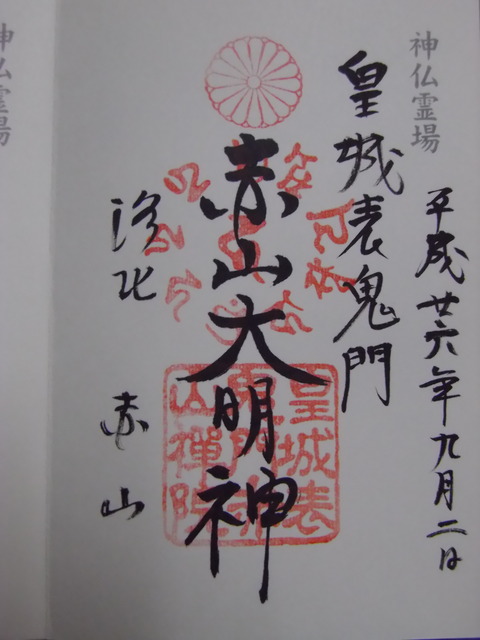 神仏霊場
平成廿六年九月二日
皇城表鬼門
赤山大明神
皇城表
鬼門赤
山禅院
洛北 赤山
神仏霊場